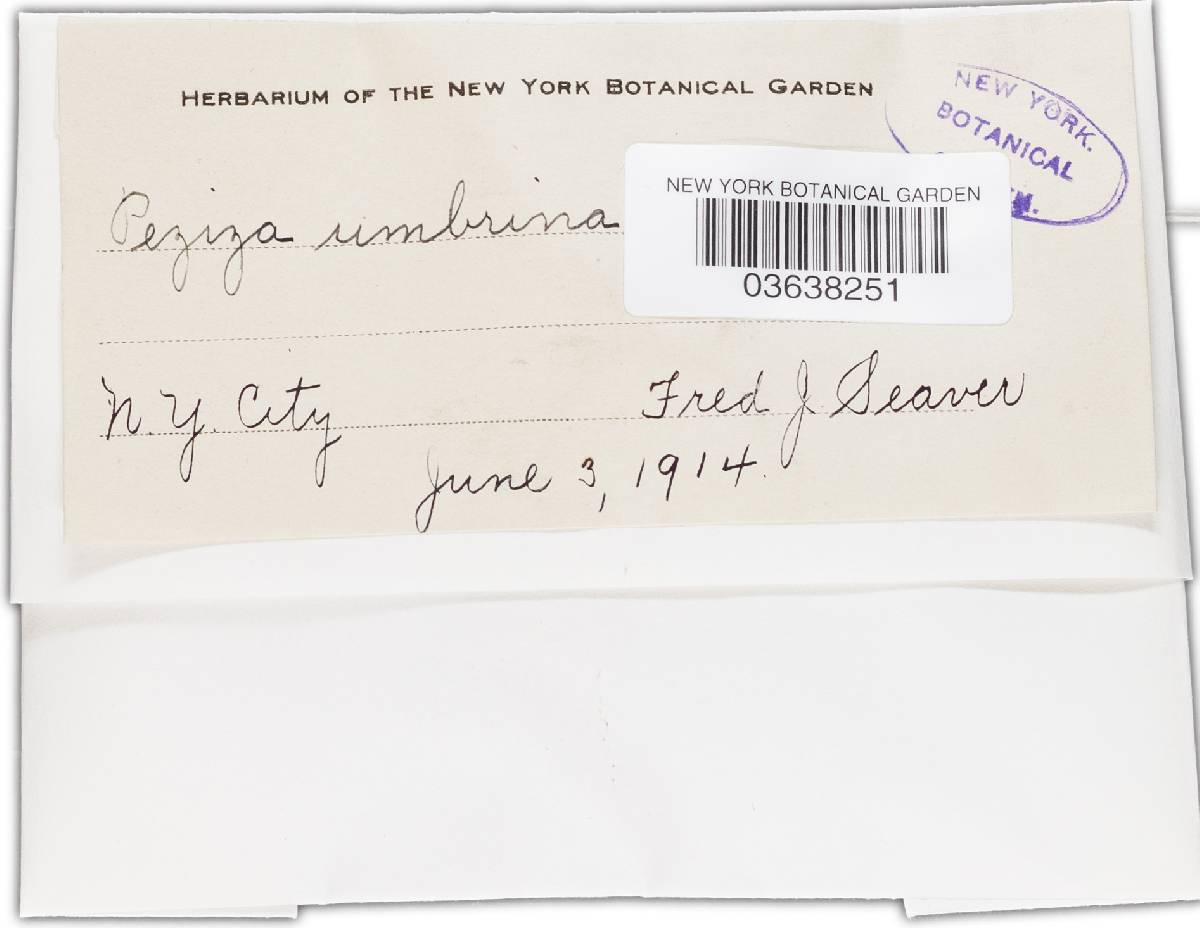 HERBARIUM OF THE NEW YORK BOTANICAL GARDEN
NEW YORK.
BOTANICAL
NEW YORK BOTANICAL GARDEN
03638251
Peziza umbrina
N.Y. City
Fred J Seaver
June 3, 1914.